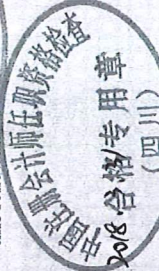 中国注册会计师任职资格检查
2018 合格专用章
(四川)